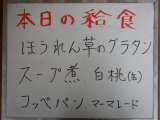 本日の給食
ほうれん草のグラタン
スープ煮 白桃(缶)
コッペパン マーマレード